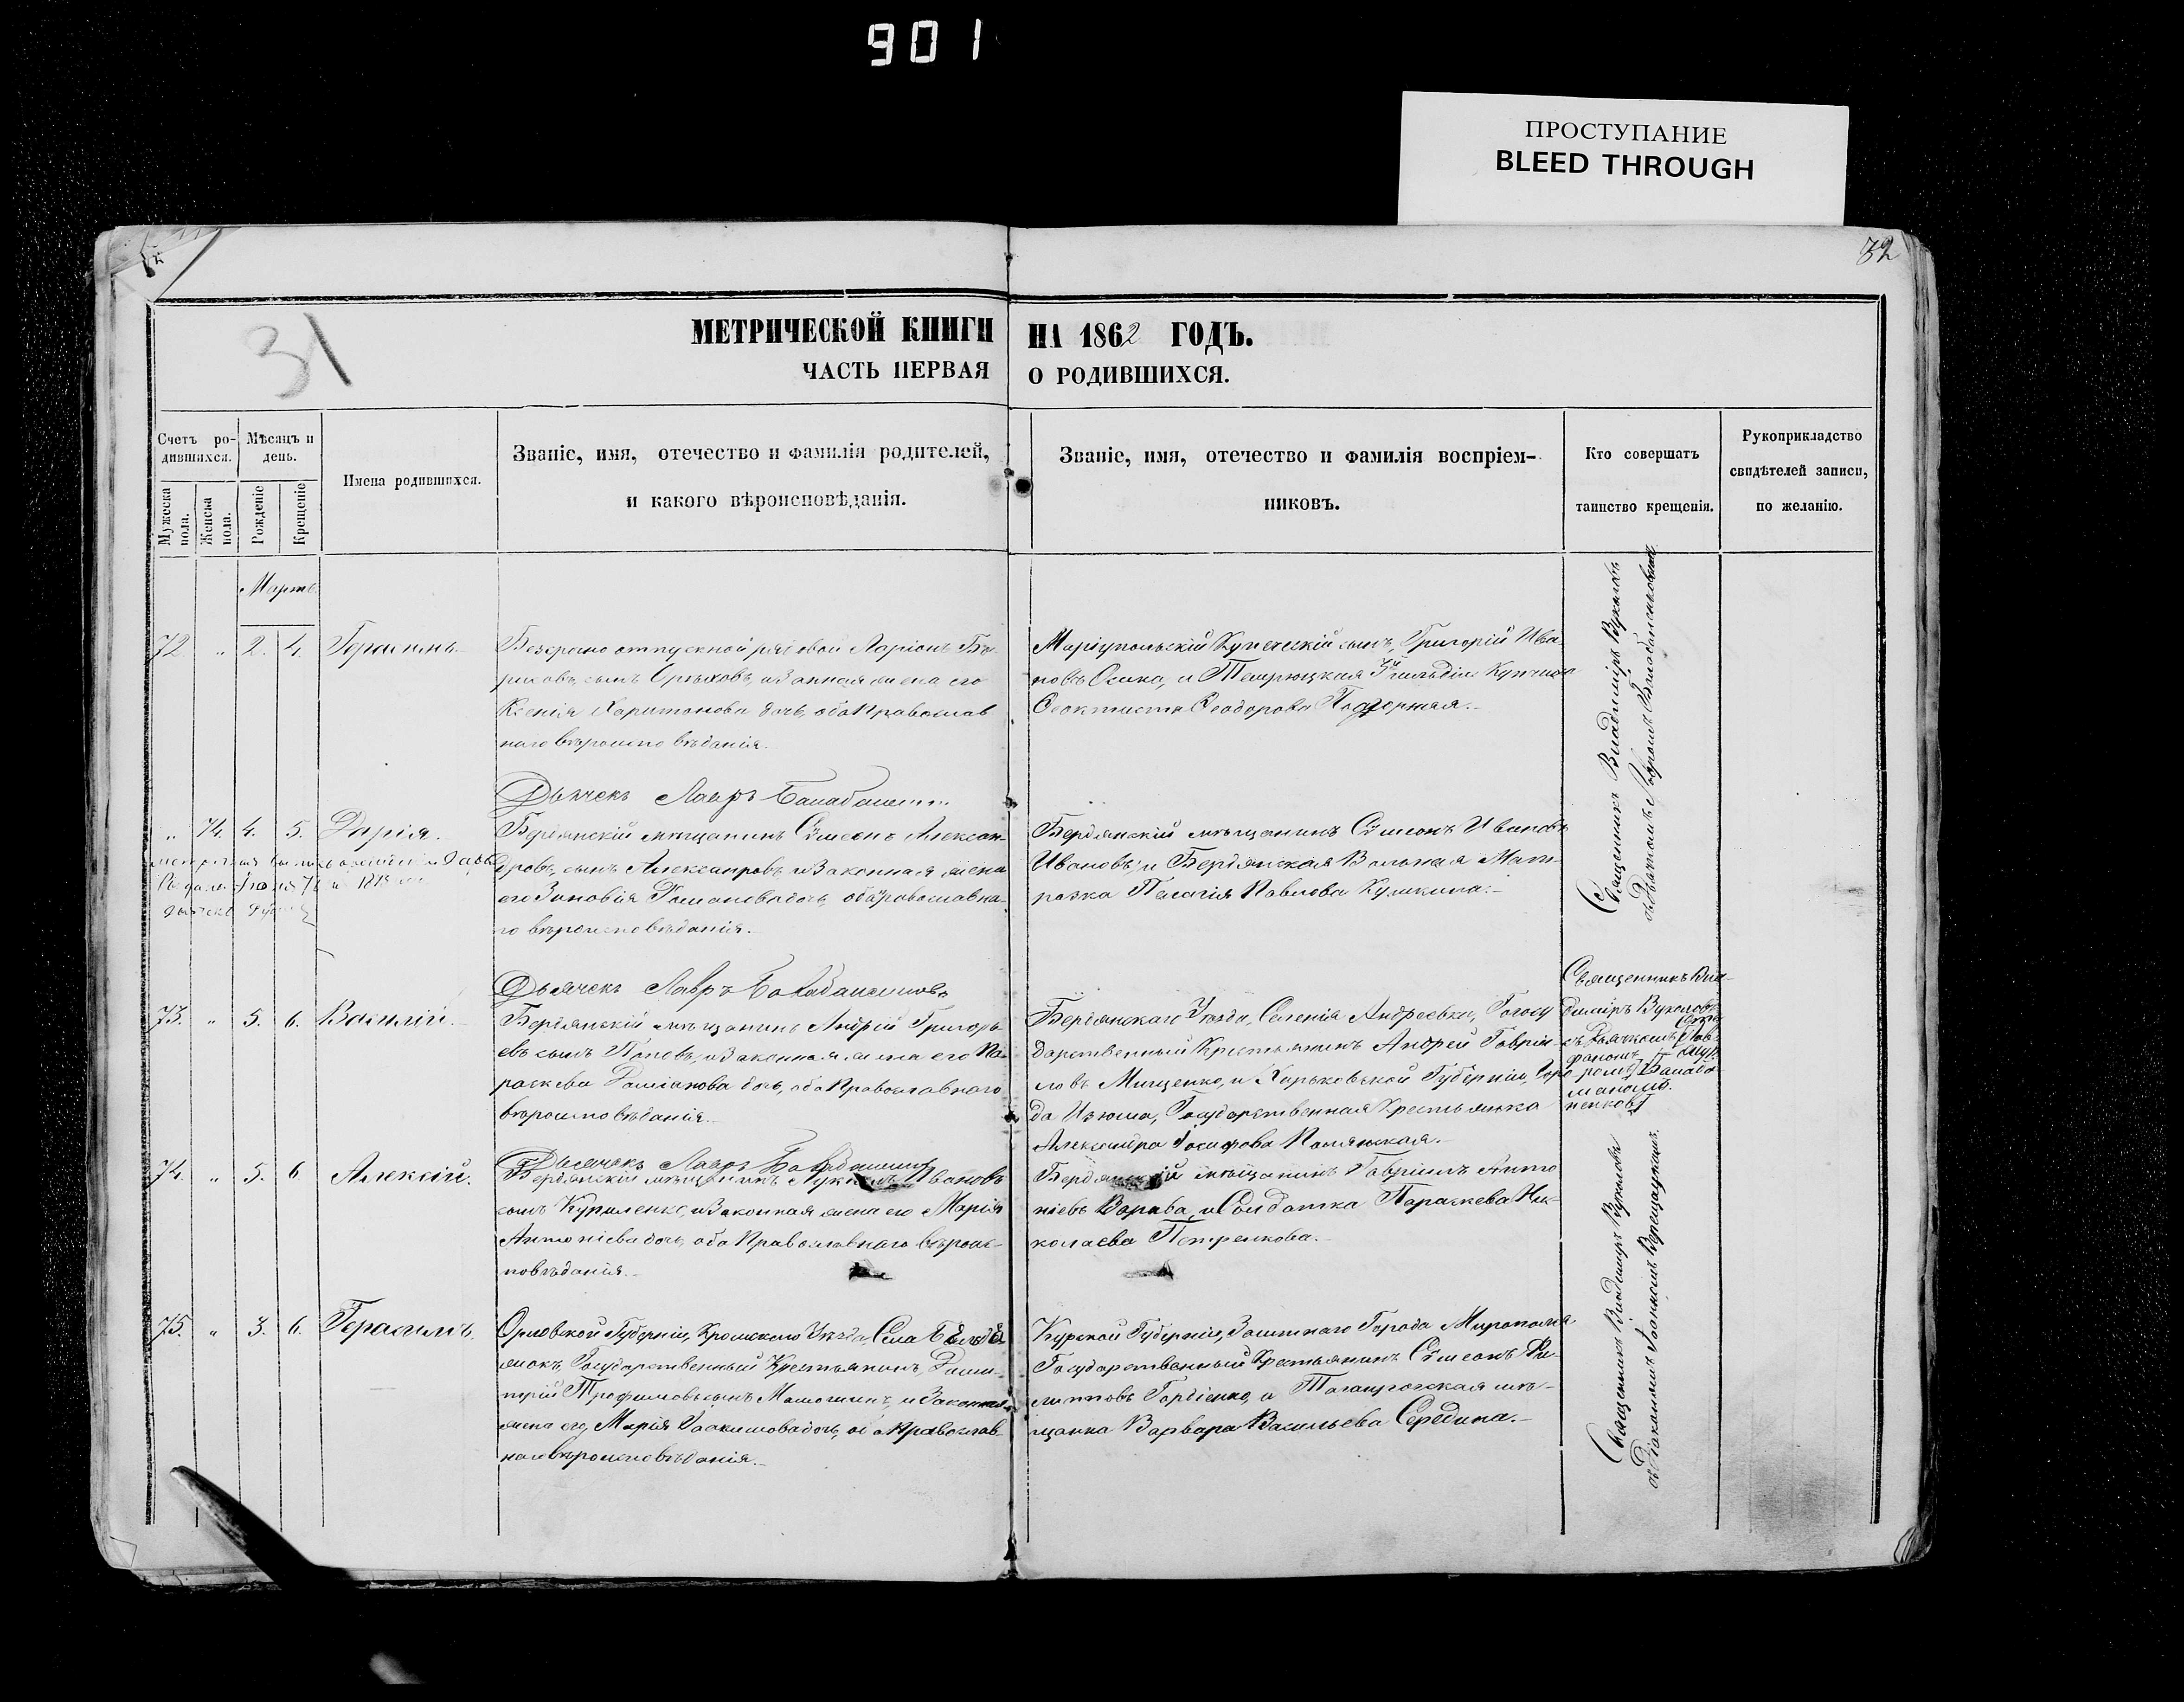 901
ПРОСТУПАНИЕ
BLEED THROUGH
32
31
МЕТРИЧЕСКОЙ КНИГИ НА 1862 ГОДЪ.
ЧАСТЬ ПЕРВАЯ О РОДИВШИХСЯ.
Счетъ ро-
дившихся.
Мужеска пола.
Женска пола.
Мѣсяцъ и
день.
Рожденіе
Крещеніе
Имена родившихся.
Званіе, имя, отечество и фамилія родителей,
и какого вѣроисповѣданія.
Званіе, имя, отечество и фамилія воспріем-
никовъ.
Кто совершалъ
таинство крещенія.
Рукоприкладство
свидѣтелей записи,
по желанію.
Мартъ
72 " 2. 4. Герасимъ
Безсрочно отпускной рядовой Ларіонъ Бо-
рисовъ сынъ Орѣховъ, и Законная жена его
Ксенія Харитонова дочь, оба Православ
наго вѣроисповѣданія.
Маріупольскій Купеческій сынъ, Григорій Ива-
новъ Осика, и Темрюцкая 3й гильдіи Купчиха
Ѳеоктиста Ѳеодорова
Дьячекъ Лавръ
" 74. 4. 5. Дарія.
Бердянскій мѣщанинъ Сѵмеонъ Алексан-
дровъ сынъ Александровъ и Законная жена
его Зиновія Романова дочь, оба Православна-
го вѣроисповѣданія.
Бердянскій мѣщанинъ Сѵмеонъ Ивановъ
Ивановъ, и Бердянская Вольная Мат-
розка Пелагія Павлова
Священникъ Владиміръ Вуколовъ
съ Дьячкомъ
Дьячекъ Лавръ
73. " 5. 6. Василій.
Бердянскій мѣщанинъ Андрей Григорь-
евъ сынъ Поповъ, и Законная жена его Па-
раскева Даміанова дочь, оба Православнаго
вѣроисповѣданія.
Бердянскаго Уѣзда, Селенія Андреевки, Госу
дарственный Крестьянинъ Андрей Гаврии-
ловъ Мищенко, и Харьковской Губерніи, Горо
да Изюма, Государственная Крестьянка
Александра Іосифова
Священникъ Вла-
диміръ Вуколовъ
съ Дьячкомъ
Дьячекъ Лавръ
74. " 5. 6 Алексій.
Бердянскій мѣщанинъ Ивановъ
сынъ Куриленко, и Законная жена его Марія
Антоніева дочь, оба Православнаго вѣроис-
повѣданія.
Бердянскій мѣщанинъ Гавріилъ Анто
ніевъ Варава, и Солдатка Параскева Ни-
колаева Петренкова.
75. " 3. 6. Герасимъ.
Орловской Губерніи, Кромскаго Уѣзда, Села
Государственный Крестьянинъ, Дими-
трій Трофимовъ сынъ и Законная
жена его, Марія Іоакимова дочь, оба Православ-
наго вѣроисповѣданія.
Курской Губерніи, Заштатнаго Города Мирополья
Государственный Крестьянинъ Сѵмеонъ Фи-
липповъ Гордіенко, и Таганрогская мѣ-
щанка Варвара Васильева Середина.
Священникъ Владиміръ Вуколовъ
съ Діакономъ Іоанномъ Верещацкимъ.